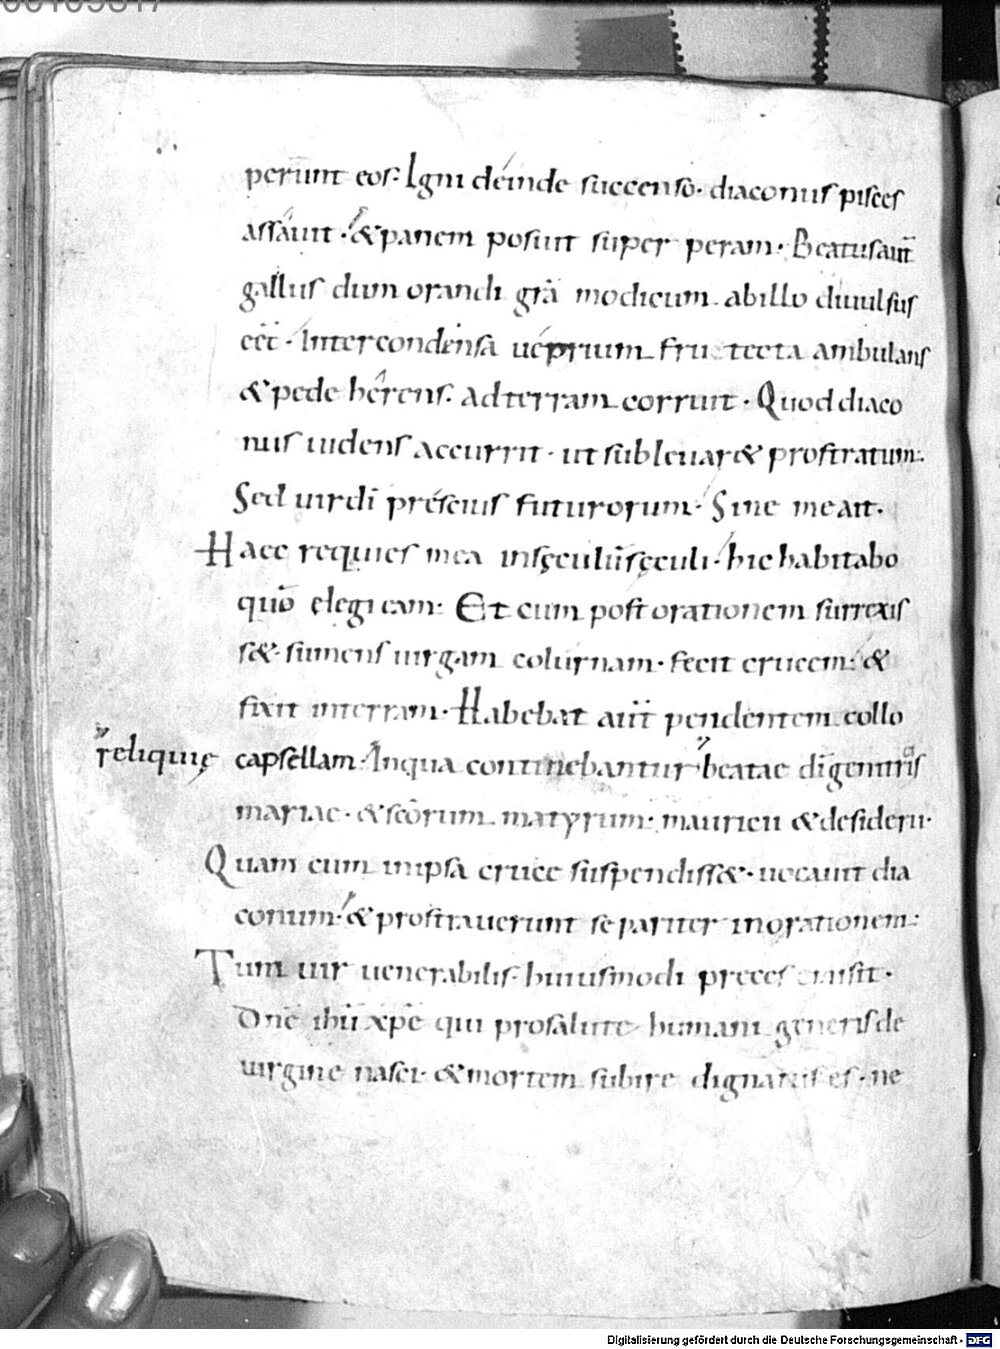 perunt eos: Igni deinde succenso· diaconus pisces
assauit·&panem posuit super peram· Beatus aut̄
gallus dum orandi grā modicum abillo diuulsus
eēt· Inter condensa ueprium frutecta ambulans
&pede herens· adterram corruit· Quod diaco
nus uidens accurrit· ut subleuar& prostratum·
Sed uir dī prescius futurorum· Sine me ait·
Haec requies mea insęculū sęculi· hic habitabo
quō elegi eam: Et cum post orationem surrexis
s&· sumens uirgam colurnam· fecit crucem: &
fixit interram· Habebat aūt pendentem collo
reliquię capsellam· Inqua continebantur beatae dī genitricis
mariae· &scōrum martyrum· mauricii &desiderii·
Quam cum inipsa cruce suspendiss&· uocauit dia
conum· & prostrauerunt se pariter inorationem:
Tum uir uenerabilis· huiusmodi preces emisit·
Dn̄e ihū xp̄e qui prosalute humani generis de
uirgine nasci· &mortem subire dignatus es· ne
Digitalisierung gefördert durch die Deutsche Forschungsgemeinschaft - DFG